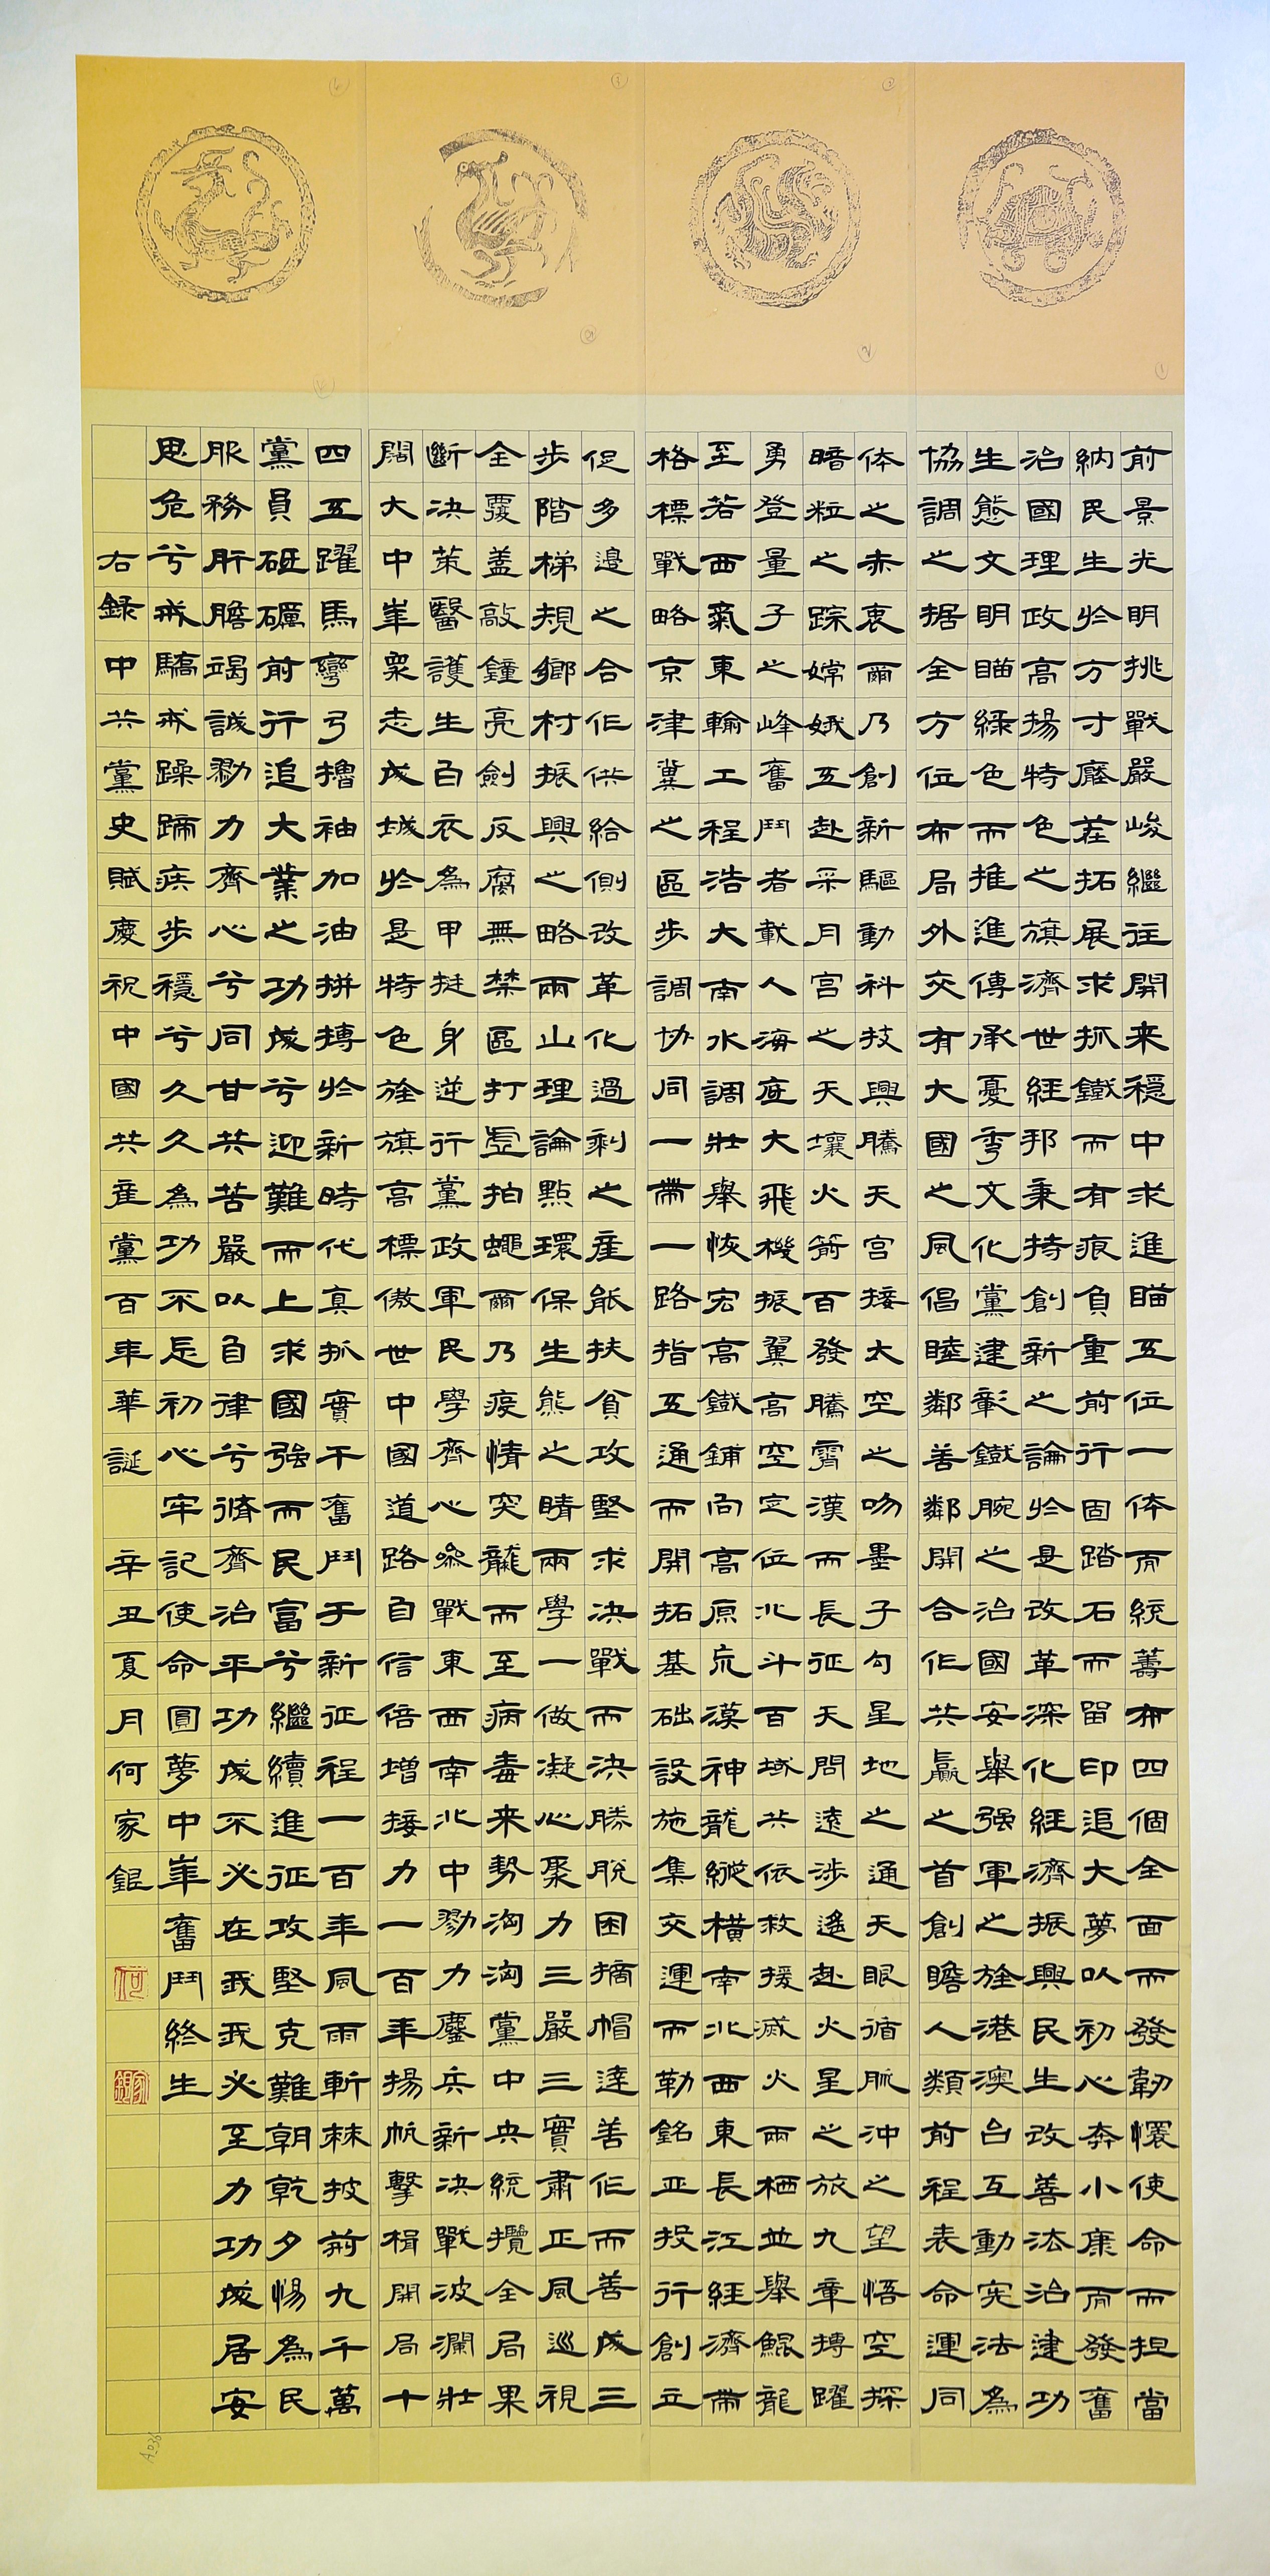 前景光明挑戰嚴峻繼往開来穩中求進瞄五位一体而統籌布四個全面而發韌懷使命而担當
納民生於方寸廢茬拓展求抓鐵而有痕負重前行固踏石而留印追大夢以初心奔小康而發奮
治國理政高揚特色之旗濟世経邦秉持創新之論於是改革深化経濟振興民生改善法治建功
生態文明瞄緑色而推進傳承憂秀文化黨建彰鐵腕之治國安舉强軍之旌港澳台互動宪法為
協調之据全方位布局外交有大國之風倡睦鄰善鄰開合作共贏之首創瞻人類前程表命運同
体之赤衷爾乃創新驅動科技興騰天宫接太空之吻墨子勾星地之通天眼循脈沖之望悟空探
暗粒之踪嫦娥五赴采月宫之天壤火箭百發騰霄漢而長征天問遠涉遥赴火星之旅九章摶躍
勇登量子之峰奮鬥者載人海底大飛機振翼高空定位北斗百域共依救援滅火兩栖並舉鯤龍
至若西氣東輸工程浩大南水調壯舉恢宏高鐵鋪向高原荒漠神龍縱横南北西東長江経濟帶
格標戰略京津冀之區步調協同一帶一路指五通而開拓基础設施集交運而勒銘亚投行創立
促多邊之合作供給側改革化過剩之産能扶貧攻堅求决戰而决勝脱困摘帽達善作而善成三
步階梯規鄉村振興之略兩山理論點環保生態之睛兩學一做凝心聚力三嚴三實肅正風巡視
全覆盖敲鐘亮劍反腐無禁區打虎拍蠅爾乃疫情突襲而至病毒来勢洶洶黨中央統攬全局果
斷决策醫護生白衣為甲挺身逆行黨政軍民學齊心參戰東西南北中勠力鏖兵新决戰波瀾壯
闊大中華衆志成城於是特色旌旗高標傲世中國道路自信倍增接力一百年揚帆擊楫開局十
四五躍馬彎弓擼袖加油拼搏於新時代真抓實干奮鬥于新征程一百年風雨斬棘披荊九千萬
黨員砥礪前行追大業之功成兮迎難而上求國强而民富兮繼續進征攻堅克難朝乾夕惕為民
服務肝膽竭誠勠力齊心兮同甘共苦嚴以自律兮脩齊治平功成不必在我我必至力功成居安
思危兮戒驕戒躁蹄疾步穩兮久久為功不忘初心牢記使命圓夢中華奮鬥終生
右録中共黨史賦慶祝中國共産黨百年華誕 辛丑夏月何家錕
何
家錕